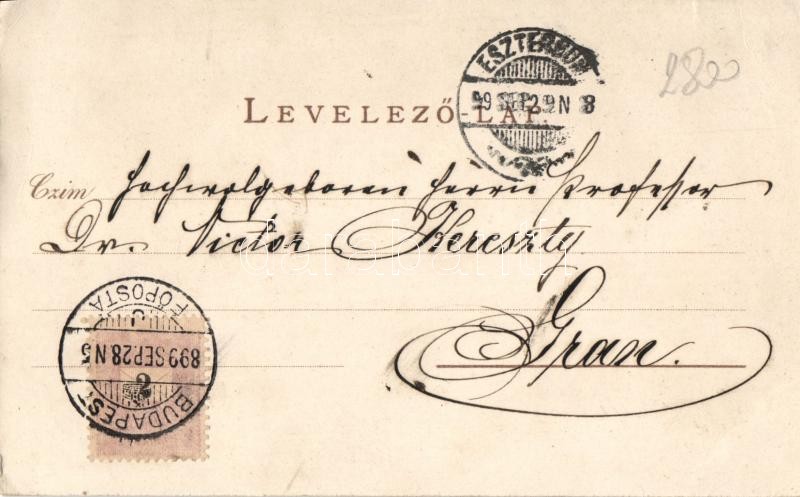 ESZTERGOM
99 SEP. 29 N 8
2800
LEVELEZŐ-LAP.
Czim Hochwolgeboren Herrn Professor
Dr. Victor Kereszty
Gran.
BUDAPEST
899 SEP 28 N 5
FŐPOSTA